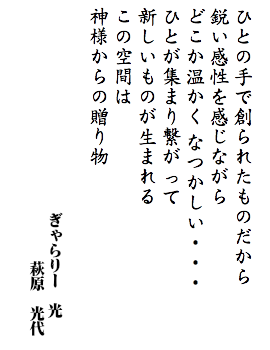 ひとの手で創られたものだから
鋭い感性を感じながら
どこか温かくなつかしい・・・
ひとが集まり繋がって
新しいものが生まれる
この空間は
神様からの贈り物
ぎゃらりー　光
萩原　光代